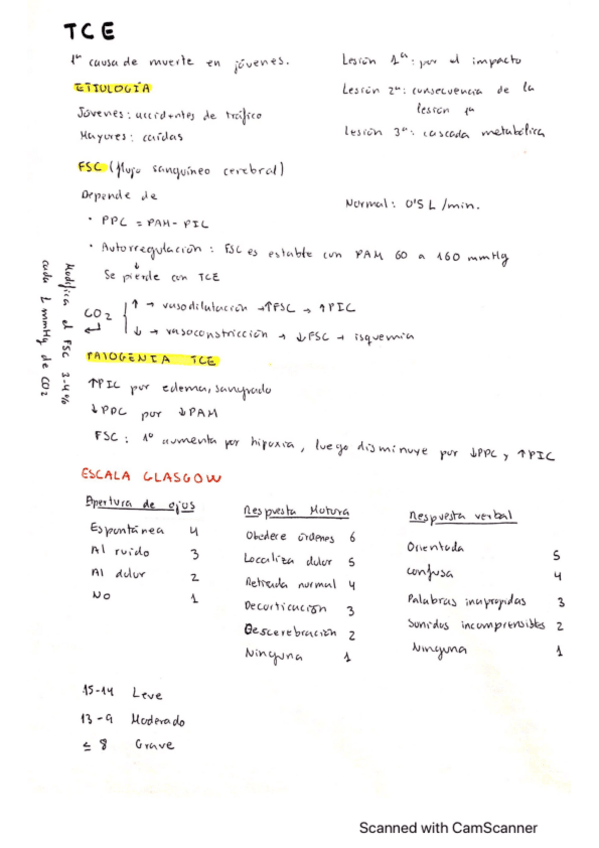 TCE
1ª causa de muerte en jóvenes.
Lesión 1ª: por el impacto
ETIOLOGÍA
Lesión 2ª: consecuencia de la
lesión 1ª
Jóvenes: accidentes de tráfico
Mayores: caídas
Lesión 3ª: cascada metabólica
FSC (flujo sanguíneo cerebral)
Depende de
Normal: 0'5 L/min.
· PPC = PAM - PIC
· Autorregulación: FSC es estable con PAM 60 a 160 mmHg
↓
Se pierde con TCE
CO2 { ↑ → vasodilatación → ↑FSC → ↑PIC
↓ → vasoconstricción → ↓FSC → isquemia
Modifica el FSC 3-4%
cada 1 mmHg de CO2
PATOGENIA TCE
↑PIC por edema, sangrado
↓PPC por ↓PAM
FSC: 1º aumenta por hipoxia, luego disminuye por ↓PPC y ↑PIC
ESCALA GLASGOW
Apertura de ojos
Espontánea 4
Al ruido 3
Al dolor 2
No 1
Respuesta Motora
Obedece órdenes 6
Localiza dolor 5
Retirada normal 4
Decorticación 3
Descerebración 2
Ninguna 1
Respuesta verbal
Orientada 5
Confusa 4
Palabras inapropiadas 3
Sonidos incomprensibles 2
Ninguna 1
15-14 Leve
13-9 Moderado
≤ 8 Grave
Scanned with CamScanner